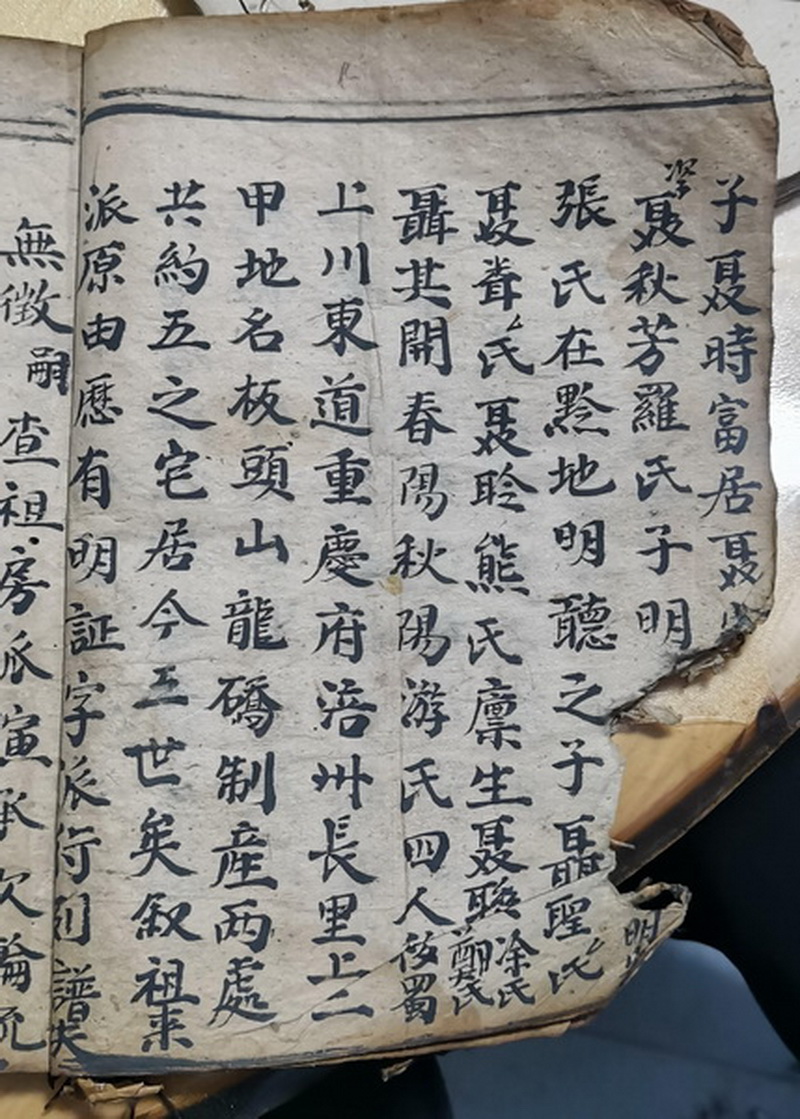 子聂時富居聂
聂秋芳羅氏子明
張氏在黔地明聽之子聶聖氏
聂聳氏聂聆熊氏廪生聂聰涂氏鄭氏
聶其開春陽秋陽游氏四人後蜀
上川東道重慶府涪州長里上二
甲地名板頭山龍礄制産两處
共約五之宅居今三世矣叙祖来
派原由歷有明証字派行列譜夫
無徵嗣查祖房派寅承次倫流